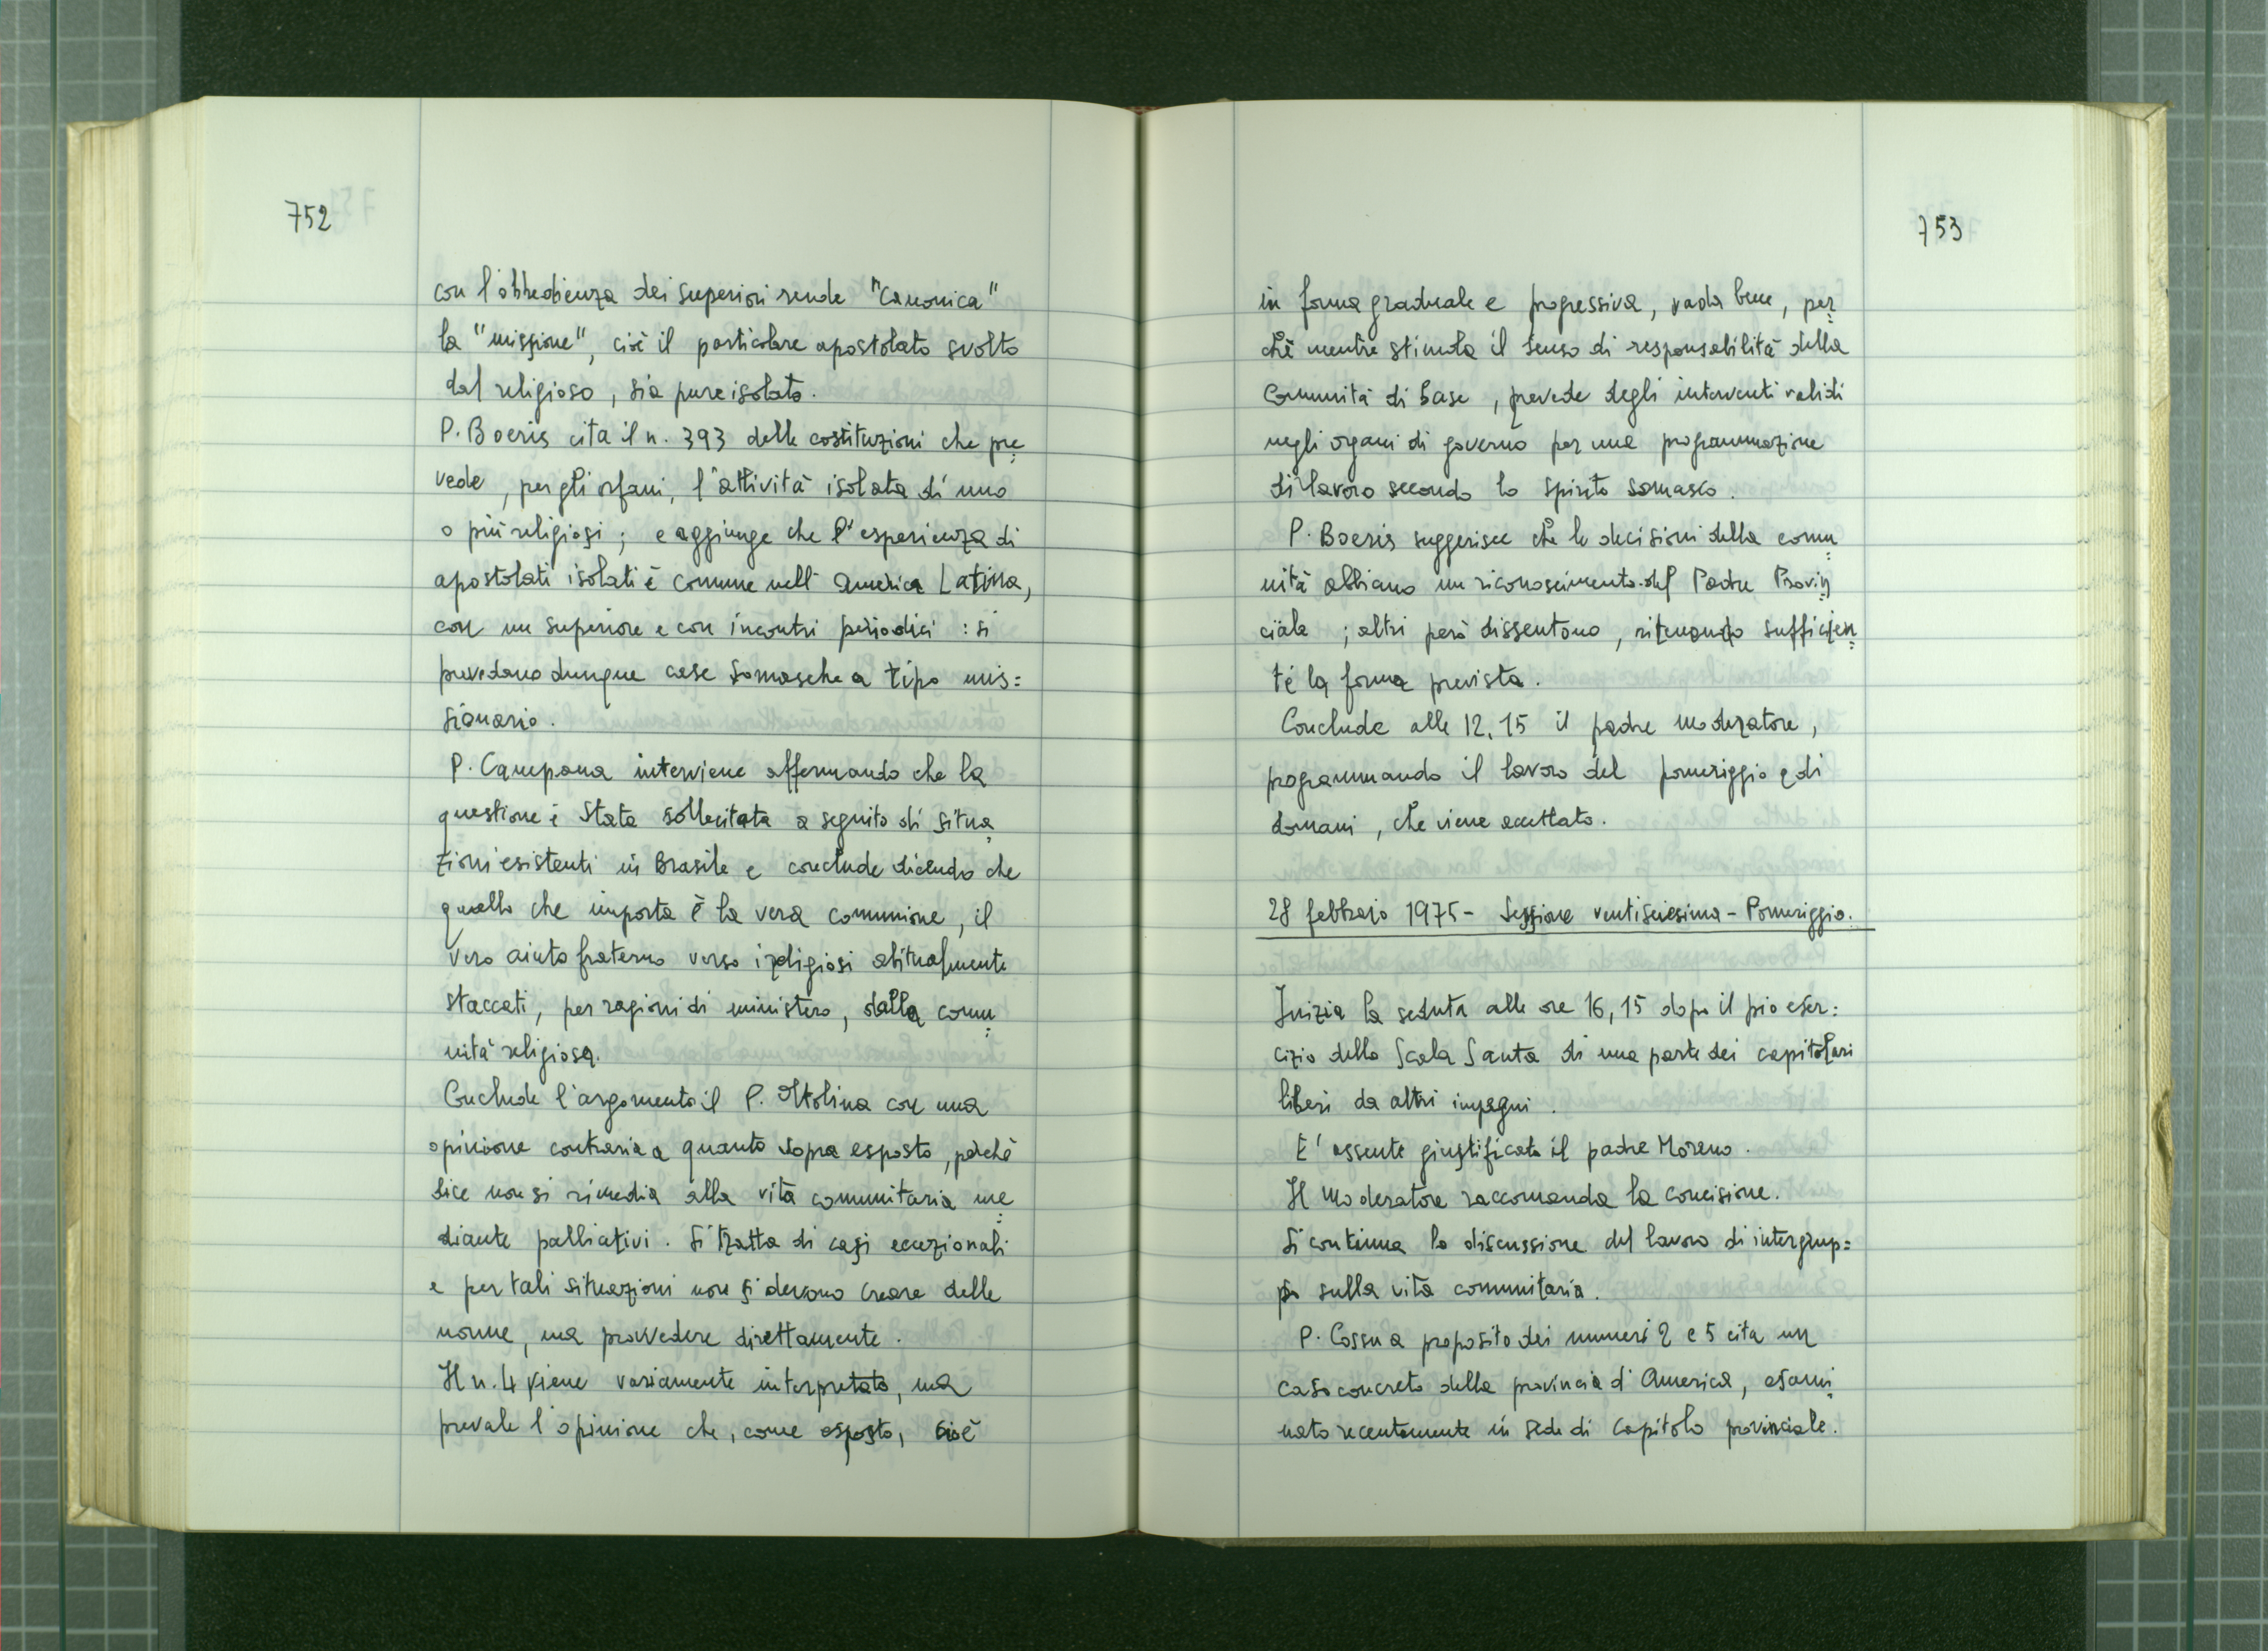 752
con l'obbedienza dei superiori rende "canonica"
la "missione", cioè il particolare apostolato svolto
dal religioso, sia pure isolato.
P. Boeris cita il n. 393 delle costituzioni che pre=
vede, per gli orfani, l'attività isolata di uno
o più religiosi; e aggiunge che l'esperienza di
apostolati isolati è comune nell'America Latina,
con un superiore e con incontri periodici: si
prevedano dunque case somasche a tipo mis=
sionario.
P. Campana interviene affermando che la
questione è stata sollecitata a seguito di situa=
zioni esistenti in Brasile e conclude dicendo che
quello che importa è la vera comunione, il
vero aiuto fraterno verso i religiosi abitualmente
staccati, per ragioni di ministero, dalla comu=
nità religiosa.
Conclude l'argomento il P. Molina con una
opinione contraria a quanto sopra esposto, perchè
dice non si rimedia alla vita comunitaria me=
diante palliativi. Si tratta di casi eccezionali
e per tali situazioni non si devono creare delle
norme, ma provvedere direttamente.
Il n. 4 viene variamente interpretato, ma
prevale l'opinione che, come esposto, cioè
753
in forma graduale e progressiva, vada bene, per=
chè mentre stimola il senso di responsabilità della
Comunità di base, prevede degli interventi validi
negli organi di governo per una programmazione
di lavoro secondo lo spirito somasco.
P. Boeris suggerisce che le decisioni della comu=
nità abbiano un riconoscimento del Padre Provin=
ciale; altri però dissentono, ritenendo sufficien=
te la forma prevista.
Conclude alle 12,15 il padre moderatore,
programmando il lavoro del pomeriggio e di
domani, che viene accettato.
28 febbraio 1975 - Sessione ventiseiesima - Pomeriggio.
Inizia la seduta alle ore 16,15 dopo il pio eser=
cizio della Scala Santa di una parte dei capitolari
liberi da altri impegni.
E' assente giustificato il padre Moreno.
Il Moderatore raccomanda la concisione.
Si continua la discussione del lavoro di intergrup=
po sulla vita comunitaria.
P. Cossu a proposito dei numeri 2 e 5 cita un
caso concreto della provincia d'America, esami=
nato recentemente in sede di Capitolo provinciale.